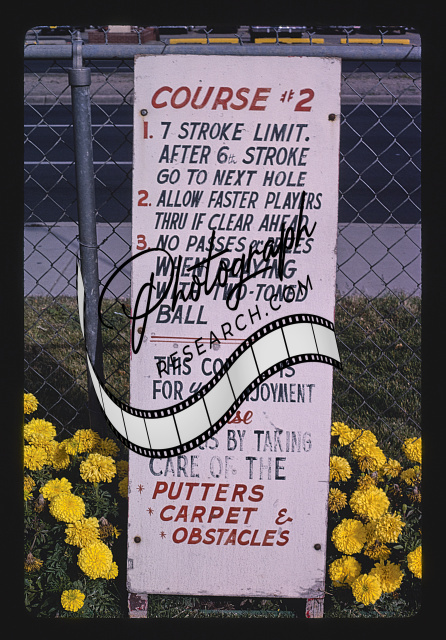 COURSE #2
1. 7 STROKE LIMIT.
AFTER 6th STROKE
GO TO NEXT HOLE
2. ALLOW FASTER PLAYERS
THRU IF CLEAR AHEAD
3. NO PASSES
WHEN
TWO-TONED
BALL
Photograph
RESEARCH.COM
THIS IS
FOR YOUR ENJOYMENT
BY TAKING
CARE OF THE
* PUTTERS
* CARPET &
* OBSTACLES